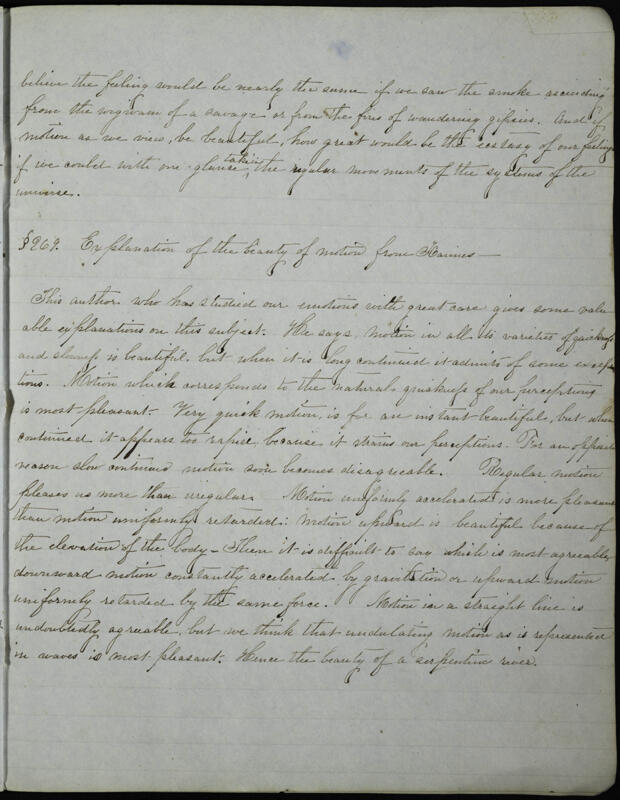 believe the feeling would be nearly the same if we saw the smoke ascending
from the wigwam of a savage or from the fires of wandering gipsies. And if
motion as we view, be beautiful, how great would be the ecstasy of our feelings
if we could with one glance, take in the regular movements of the systems of the
universe.
§269. Explanation of the beauty of motion from Kaimes—
This author who has studied our emotions with great care gives some valu
able explanations on this subject. He says, motion in all its varieties of quickness
and slowness is beautiful. but when it is long continued it admits of some excep
tions. Motion which corresponds to the natural quickness of our perceptions
is most pleasant. Very quick motion, is for an instant beautiful, but when
continued it appears too rapid, because it strains our perceptions. For an opposite
reason slow continued motion soon becomes disagreeable. Regular motion
pleases us more than irregular. Motion uniformly accelerated is more pleasant
than motion uniformly retarded: Motion upward is beautiful because of
the elevation of the body – Then it is difficult to say which is most agreeable,
downward motion constantly accelerated by gravitation or upward motion
uniformly retarded by the same force. Motion in a straight line is
undoubtedly agreeable, but we think that undulating motion as is represented
in waves is most pleasant. Hence the beauty of a serpentine river.